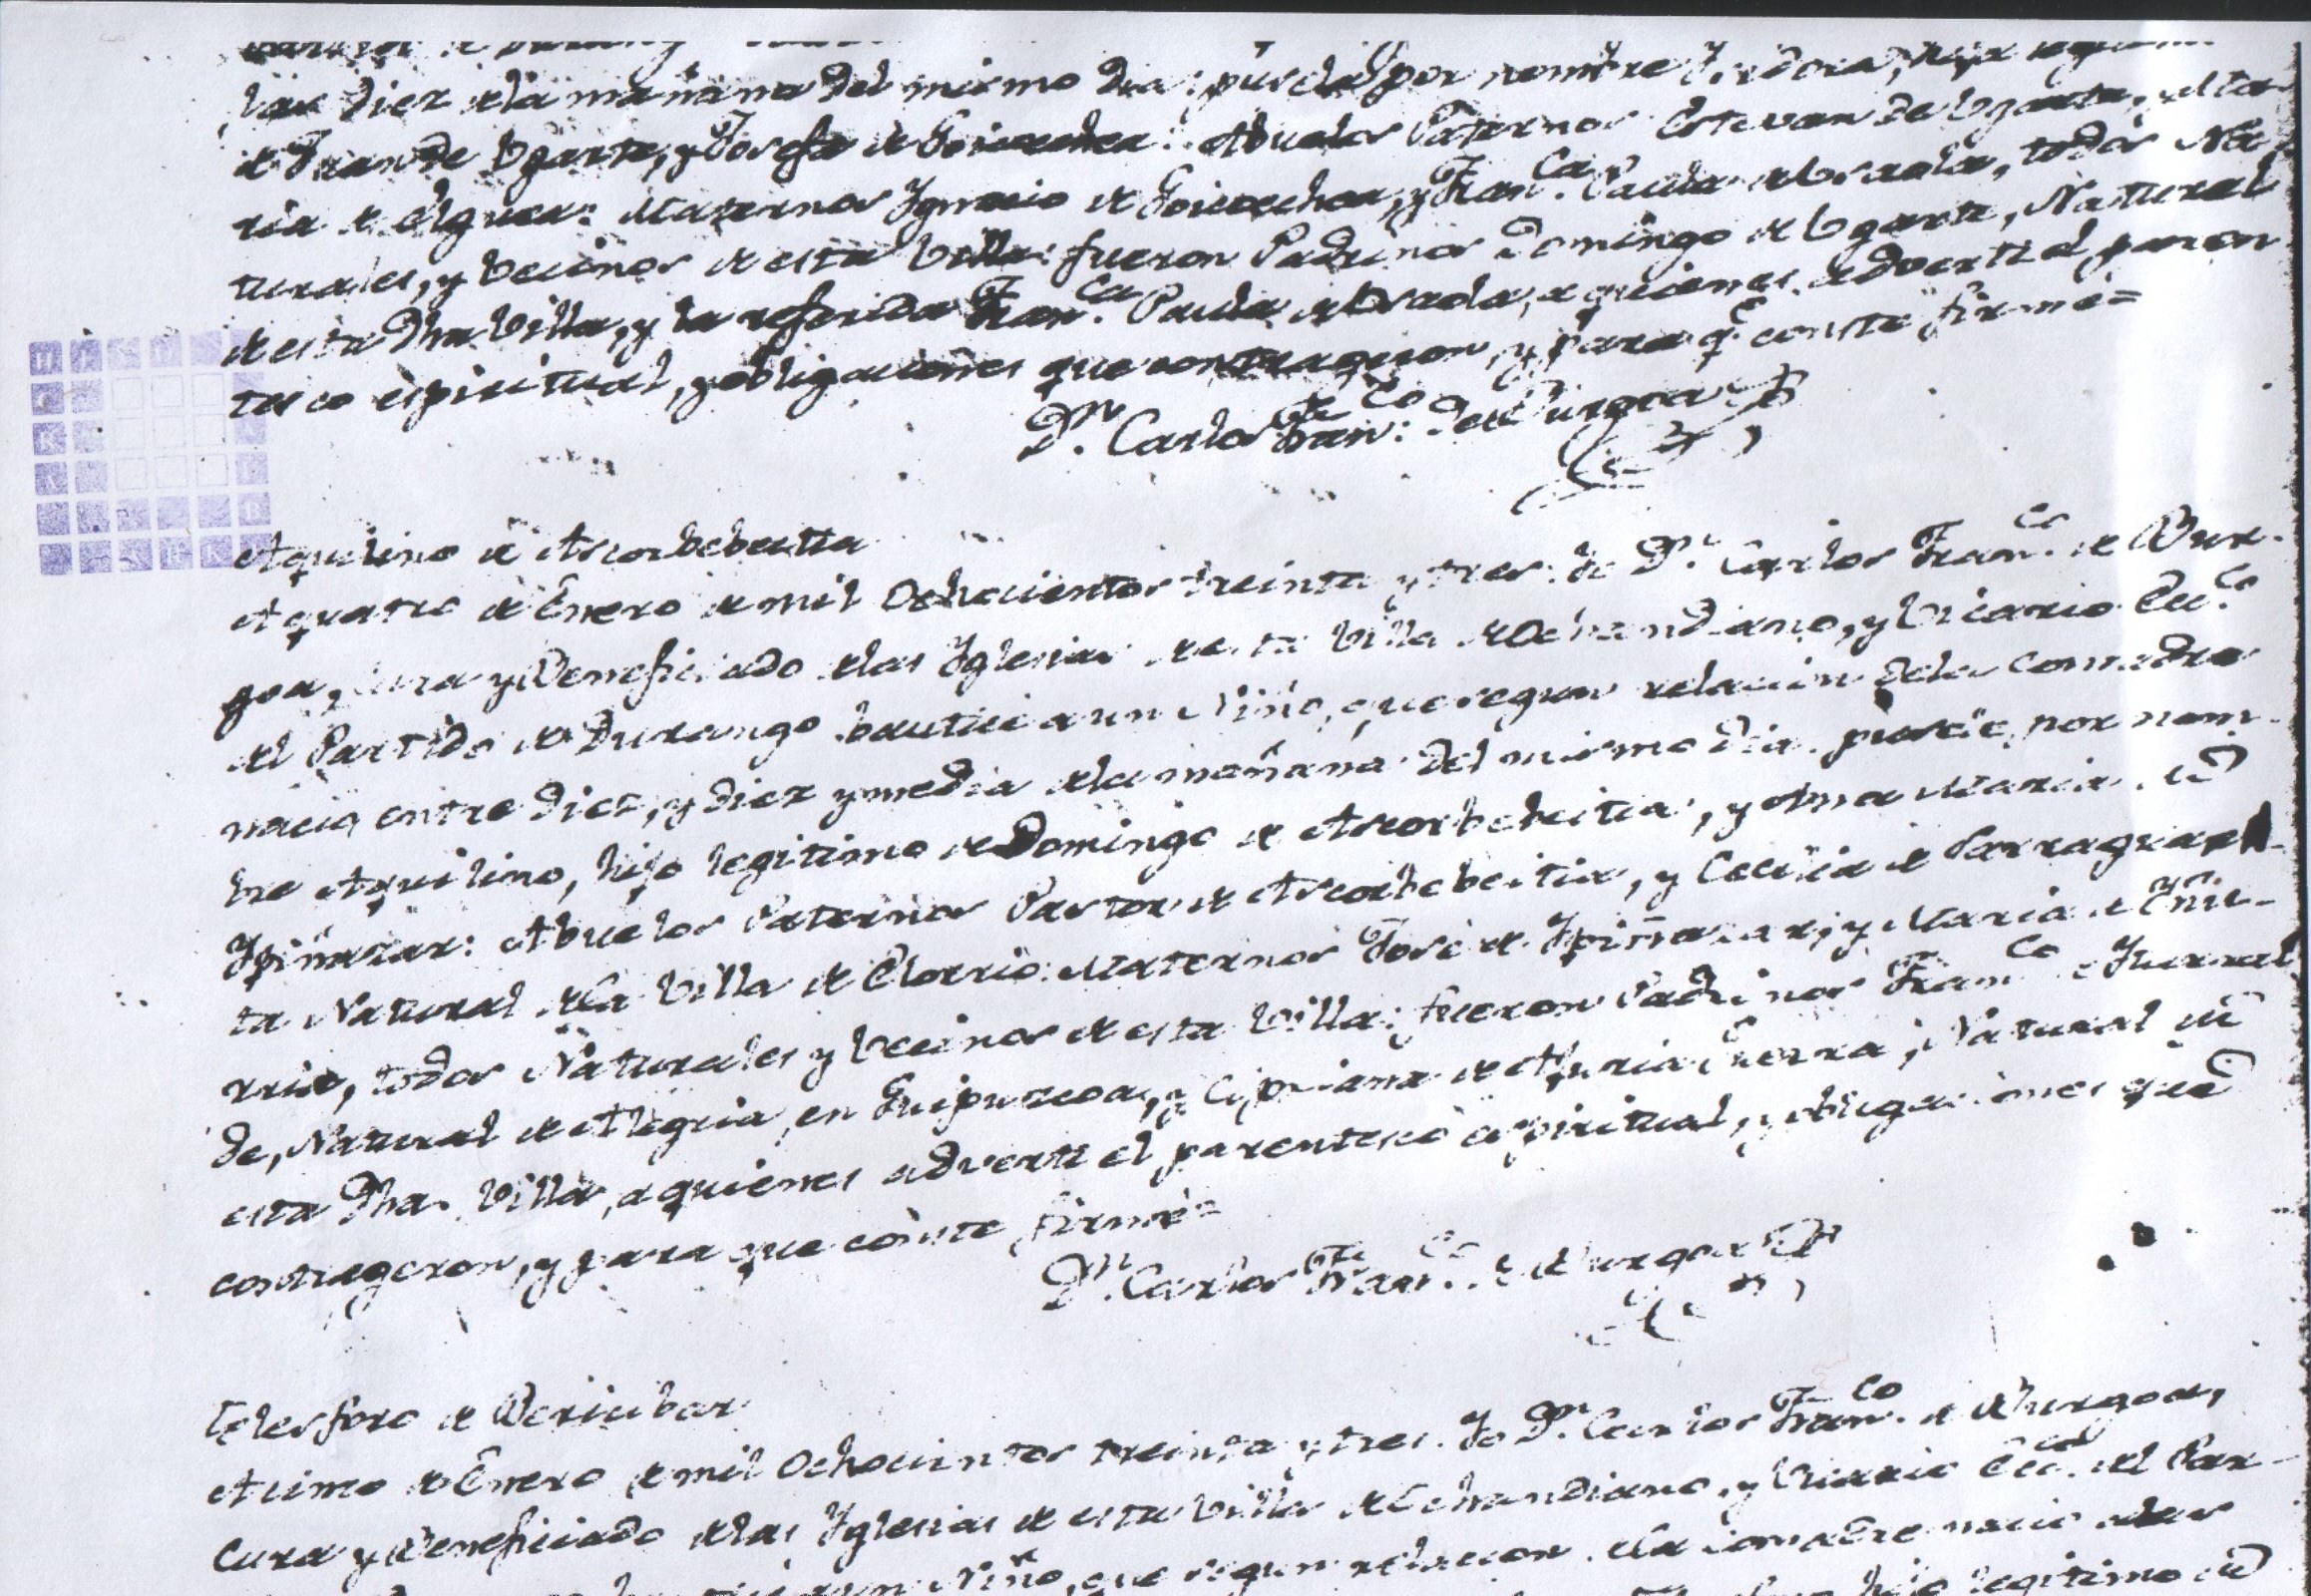 las diez de la mañana del mismo dia: pusela por nombre Ysidora, hija
de Juan de Ugarte, y Josefa de Goicoechea: Abuelos Paternos Estevan de Ugarte, y Ma-
ria de Elguea: Maternos Ygnacio de Goicoechea, y Fran.ca Paula de Usaola, todos Na-
turales, y Vecinos de esta Villa: fueron Padrinos Domingo de Ugarte, Natural
de esta Dha Villa, y la referida Fran.ca Paula de Usaola, a quienes adverti el paren-
tesco espiritual, y obligaciones que contrageron, y para q.e conste firmé=
D.n Carlos Fran.co de Burgoa
Aquilino de Ascorbebeitia
A quatro de Enero de mil Ochocientos treinta y tres: Yo D.n Carlos Fran.co de Bur-
goa, Cura y Beneficiado de las Yglesias de esta Villa de Ochandiano, y Vicario Ecc.co
del Partido de Durango bautice a un Niño, que segun relacion de la Comadre
nacio entre diez, y diez y media de la mañana del mismo dia. pusele por nom-
bre Aquilino, hijo legitimo de Domingo de Ascorbebeitia, y Ana Maria de
Ypiñazar: Abuelos Paternos Pastor de Ascorbebeitia, y Cecilia de
ta Natural de la Villa de Elorrio: Maternos José de Ypiñazar, y Maria de
rria, todos Naturales y Vecinos de esta Villa: fueron Padrinos Fran.co de
de, Natural de Alegria, en Guipuzcoa, y Cipriana de Natural de
esta Dha. Villa, a quienes adverti el parentesco espiritual, y obligaciones que
contrageron, y para que conste firmé=
D.n Carlos Fran.co de Burgoa
Telesforo de Bericibar
A cinco de Enero de mil Ochocientos treinta y tres. Yo D.n Carlos Fran.co de Burgoa,
Cura y Beneficiado de las Yglesias de esta Villa de Ochandiano, y Vicario Ecc.co del Par-
Niño, que segun relacion de la comadre nacio a las
hijo legitimo de